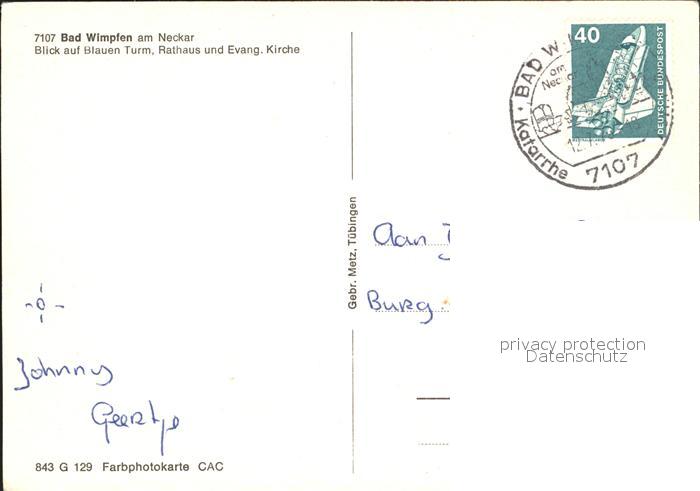 7107 Bad Wimpfen am Neckar
Blick auf Blauen Turm, Rathaus und Evang. Kirche
40
DEUTSCHE BUNDESPOST
BAD W
am
Neckar
Katarrhe 7107
Gebr. Metz, Tübingen
Aan
Burg.
privacy protection
Datenschutz
Johnny
Geertje
843 G 129 Farbphotokarte CAC